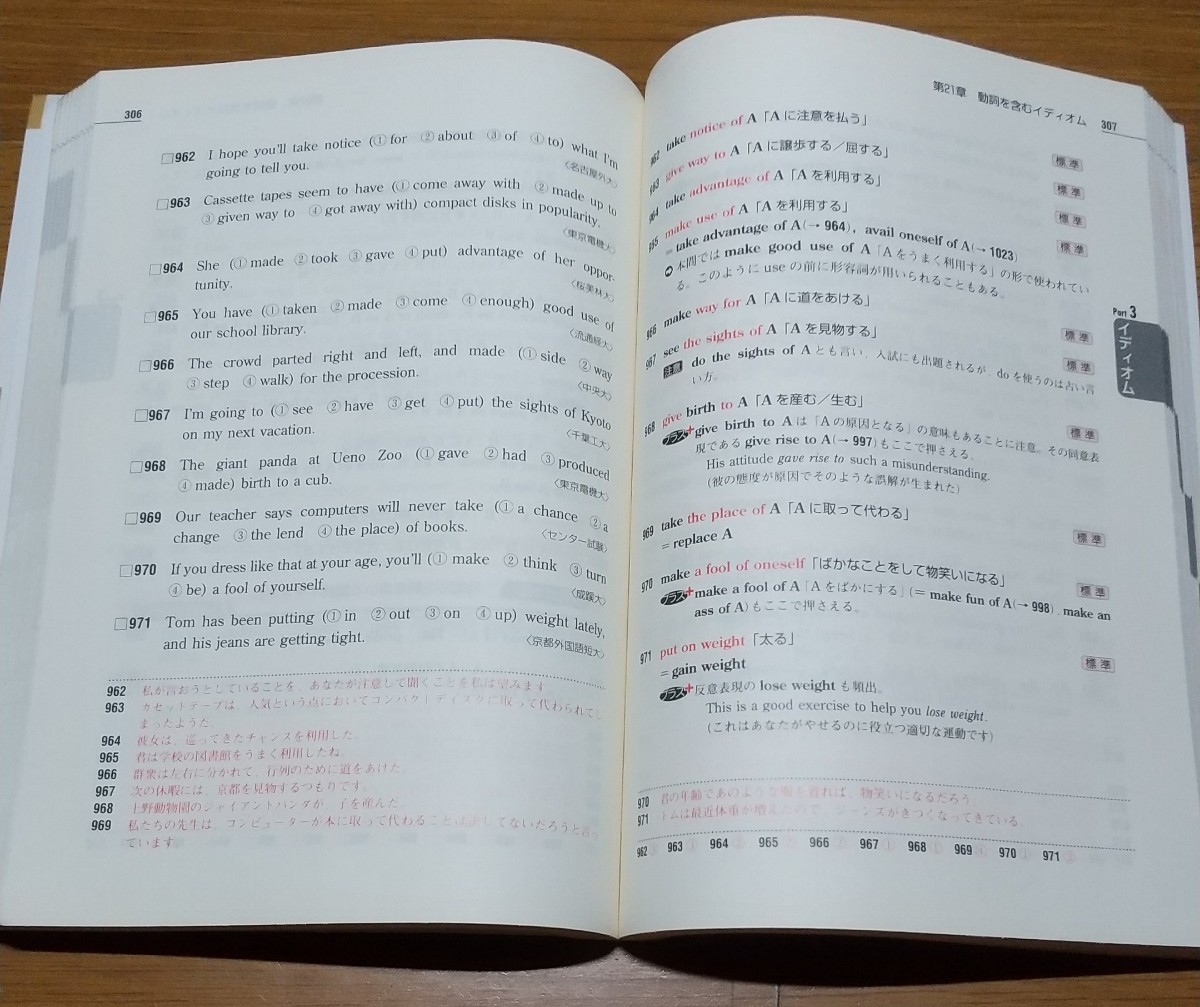 306
□962 I hope you'll take notice (①for ②about ③of ④to) what I'm
going to tell you.
〈名古屋外大〉
□963 Cassette tapes seem to have (①come away with ②made up to
③given way to ④got away with) compact disks in popularity.
〈東京電機大〉
□964 She (①made ②took ③gave ④put) advantage of her oppor-
tunity.
〈桜美林大〉
□965 You have (①taken ②made ③come ④enough) good use of
our school library.
〈流通経大〉
□966 The crowd parted right and left, and made (①side ②way
③step ④walk) for the procession.
〈中央大〉
□967 I'm going to (①see ②have ③get ④put) the sights of Kyoto
on my next vacation.
〈千葉工大〉
□968 The giant panda at Ueno Zoo (①gave ②had ③produced
④made) birth to a cub.
〈東京電機大〉
□969 Our teacher says computers will never take (①a chance ②a
change ③the lend ④the place) of books.
〈センター試験〉
□970 If you dress like that at your age, you'll (①make ②think ③turn
④be) a fool of yourself.
〈成蹊大〉
□971 Tom has been putting (①in ②out ③on ④up) weight lately,
and his jeans are getting tight.
〈京都外国語短大〉
962 私が言おうとしていることを、あなたが注意して聞くことを私は望みます。
963 カセットテープは、人気という点においてコンパクトディスクに取って代わられてし
まったようだ。
964 彼女は、巡ってきたチャンスを利用した。
965 君は学校の図書館をうまく利用したね。
966 群衆は左右に分かれて、行列のために道をあけた。
967 次の休暇には、京都を見物するつもりです。
968 上野動物園のジャイアントパンダが、子を産んだ。
969 私たちの先生は、コンピューターが本に取って代わることは決してないだろうと言っ
ています。
第21章 動詞を含むイディオム 307
962 take notice of A「Aに注意を払う」
標準
963 give way to A「Aに譲歩する／屈する」
標準
964 take advantage of A「Aを利用する」
標準
965 make use of A「Aを利用する」
標準
＝take advantage of A(→964), avail oneself of A(→1023)
本問では make good use of A「Aをうまく利用する」の形で使われてい
る。このように use の前に形容詞が用いられることもある。
966 make way for A「Aに道をあける」
標準
967 see the sights of A「Aを見物する」
標準
注意 do the sights of A とも言い、入試にも出題されるが、do を使うのは古い言
い方。
968 give birth to A「Aを産む／生む」
標準
プラス+ give birth to A は「Aの原因となる」の意味もあることに注意。その同意表
現である give rise to A(→997)もここで押さえる。
His attitude gave rise to such a misunderstanding.
(彼の態度が原因でそのような誤解が生まれた)
969 take the place of A「Aに取って代わる」
標準
＝replace A
970 make a fool of oneself「ばかなことをして物笑いになる」
標準
プラス+ make a fool of A「Aをばかにする」(＝make fun of A(→998), make an
ass of A)もここで押さえる。
971 put on weight「太る」
標準
＝gain weight
プラス+ 反意表現の lose weight も頻出。
This is a good exercise to help you lose weight.
(これはあなたがやせるのに役立つ適切な運動です)
Part 3
イディオム
970 君の年齢であのような服を着れば、物笑いになるだろう。
971 トムは最近体重が増えたので、ジーンズがきつくなってきている。
962 ③ 963 ③ 964 ② 965 ② 966 ② 967 ① 968 ① 969 ④ 970 ① 971 ③